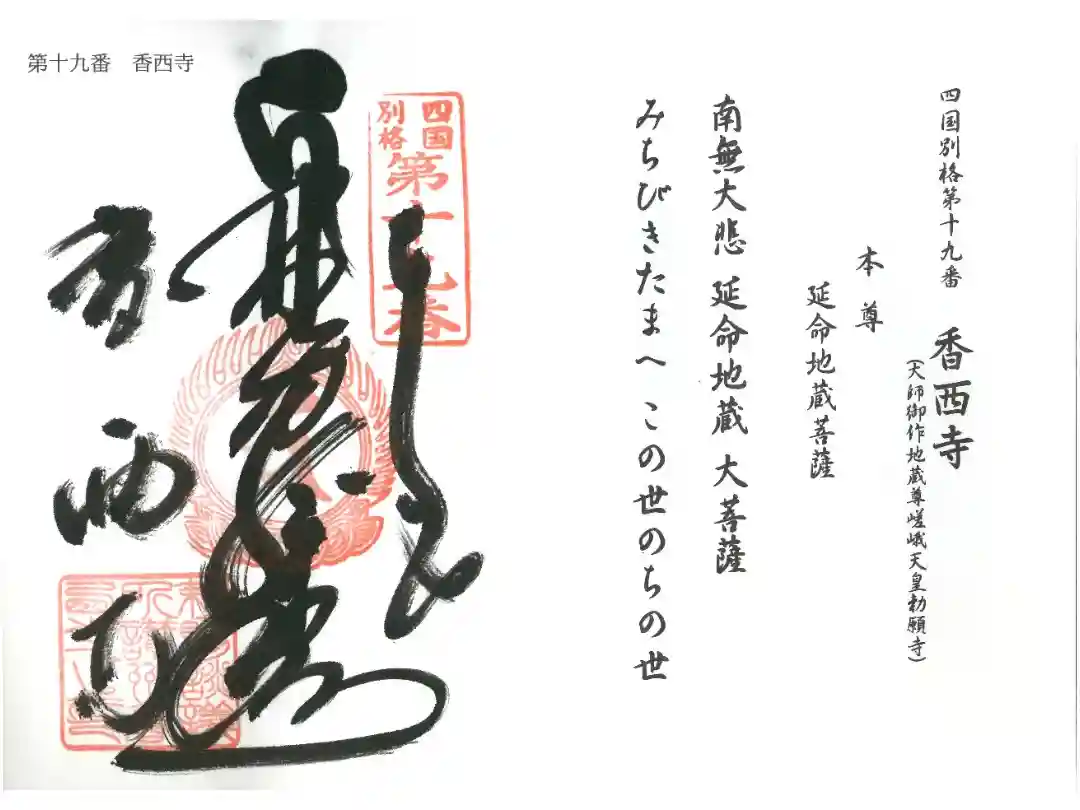 第十九番　香西寺
四国別格第十九番　香西寺
（大師御作地蔵尊嵯峨天皇勅願寺）
本尊
延命地蔵菩薩
南無大悲 延命地蔵 大菩薩
みちびきたまへ この世のちの世
四国
別格
第十九番
香西寺